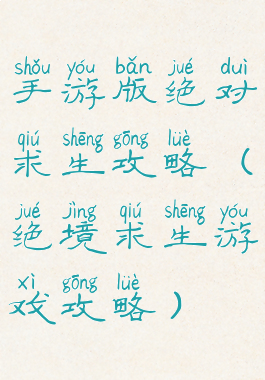 shǒu yóu bǎn jué duì
手游版绝对
qiú shēng gōng lüè
求生攻略（
jué jìng qiú shēng yóu
绝境求生游
xì gōng lüè
戏攻略）